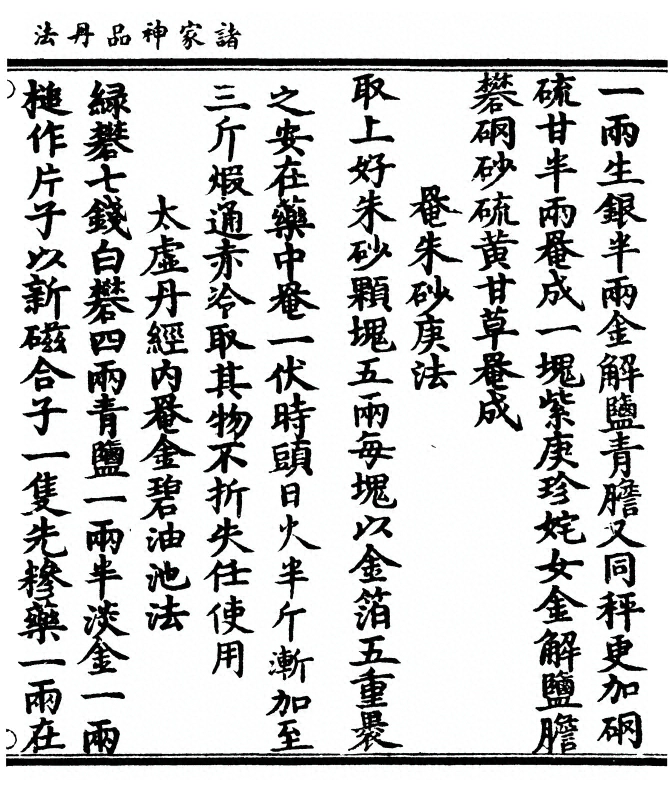 諸家神品丹法
一兩生銀半兩金解鹽青膽又同秤更加硇
硫甘半兩罨成一塊紫庚珍姹女金解鹽膽
礬硇砂硫黃甘草罨成
罨朱砂庚法
取上好朱砂顆塊五兩每塊以金箔五重褁
之安在藥中罨一伏時頭日火半斤漸加至
三斤煆通赤冷取其物不折失任使用
太虛丹經內罨金碧油池法
綠礬七錢白礬四兩青鹽一兩半淡金一兩
槌作片子以新磁合子一隻先糝藥一兩在